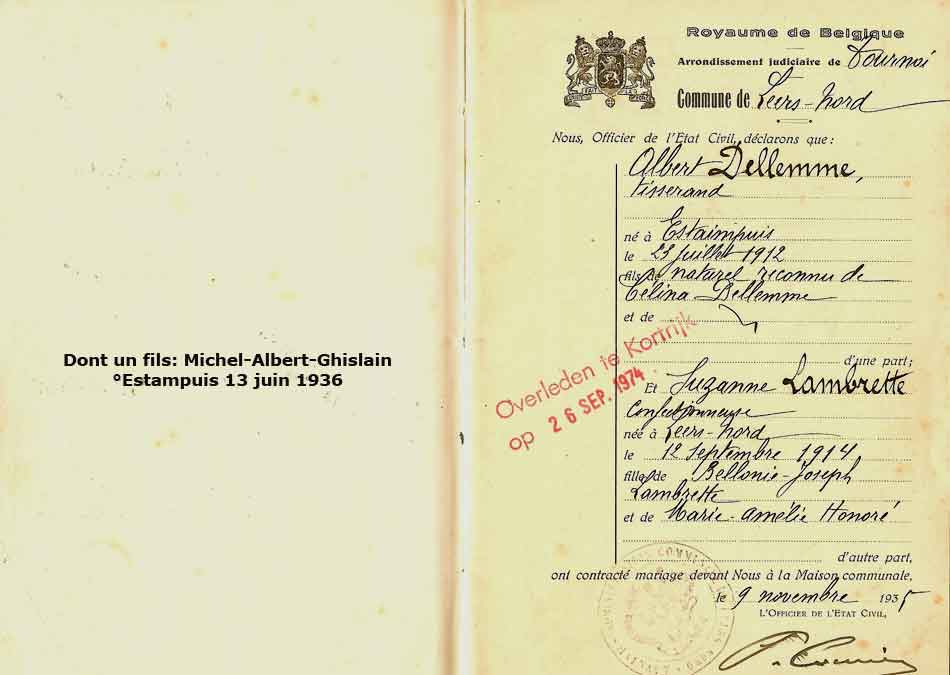 Dont un fils: Michel-Albert-Ghislain
°Estampuis 13 juin 1936
Royaume de Belgique
Arrondissement judiciaire de Tournai
Commune de Leers-Nord
Nous, Officier de l'Etat Civil, déclarons que :
Albert Dellemme,
tisserand
né à Estaimpuis
le 23 juillet 1912
fils de naturel reconnu de
Célina Dellemme
et de
d'une part;
Overleden te Kortrijk
op 26 SEP. 1974
Et Suzanne Lambrette
Confectionneuse
née à Leers-Nord
le 12 septembre 1914
fille de Bellonie-Joseph
Lambrette
et de Marie-Amélie Honoré
d'autre part,
ont contracté mariage devant Nous à la Maison communale,
le 9 novembre 1935
L'OFFICIER DE L'ETAT CIVIL,